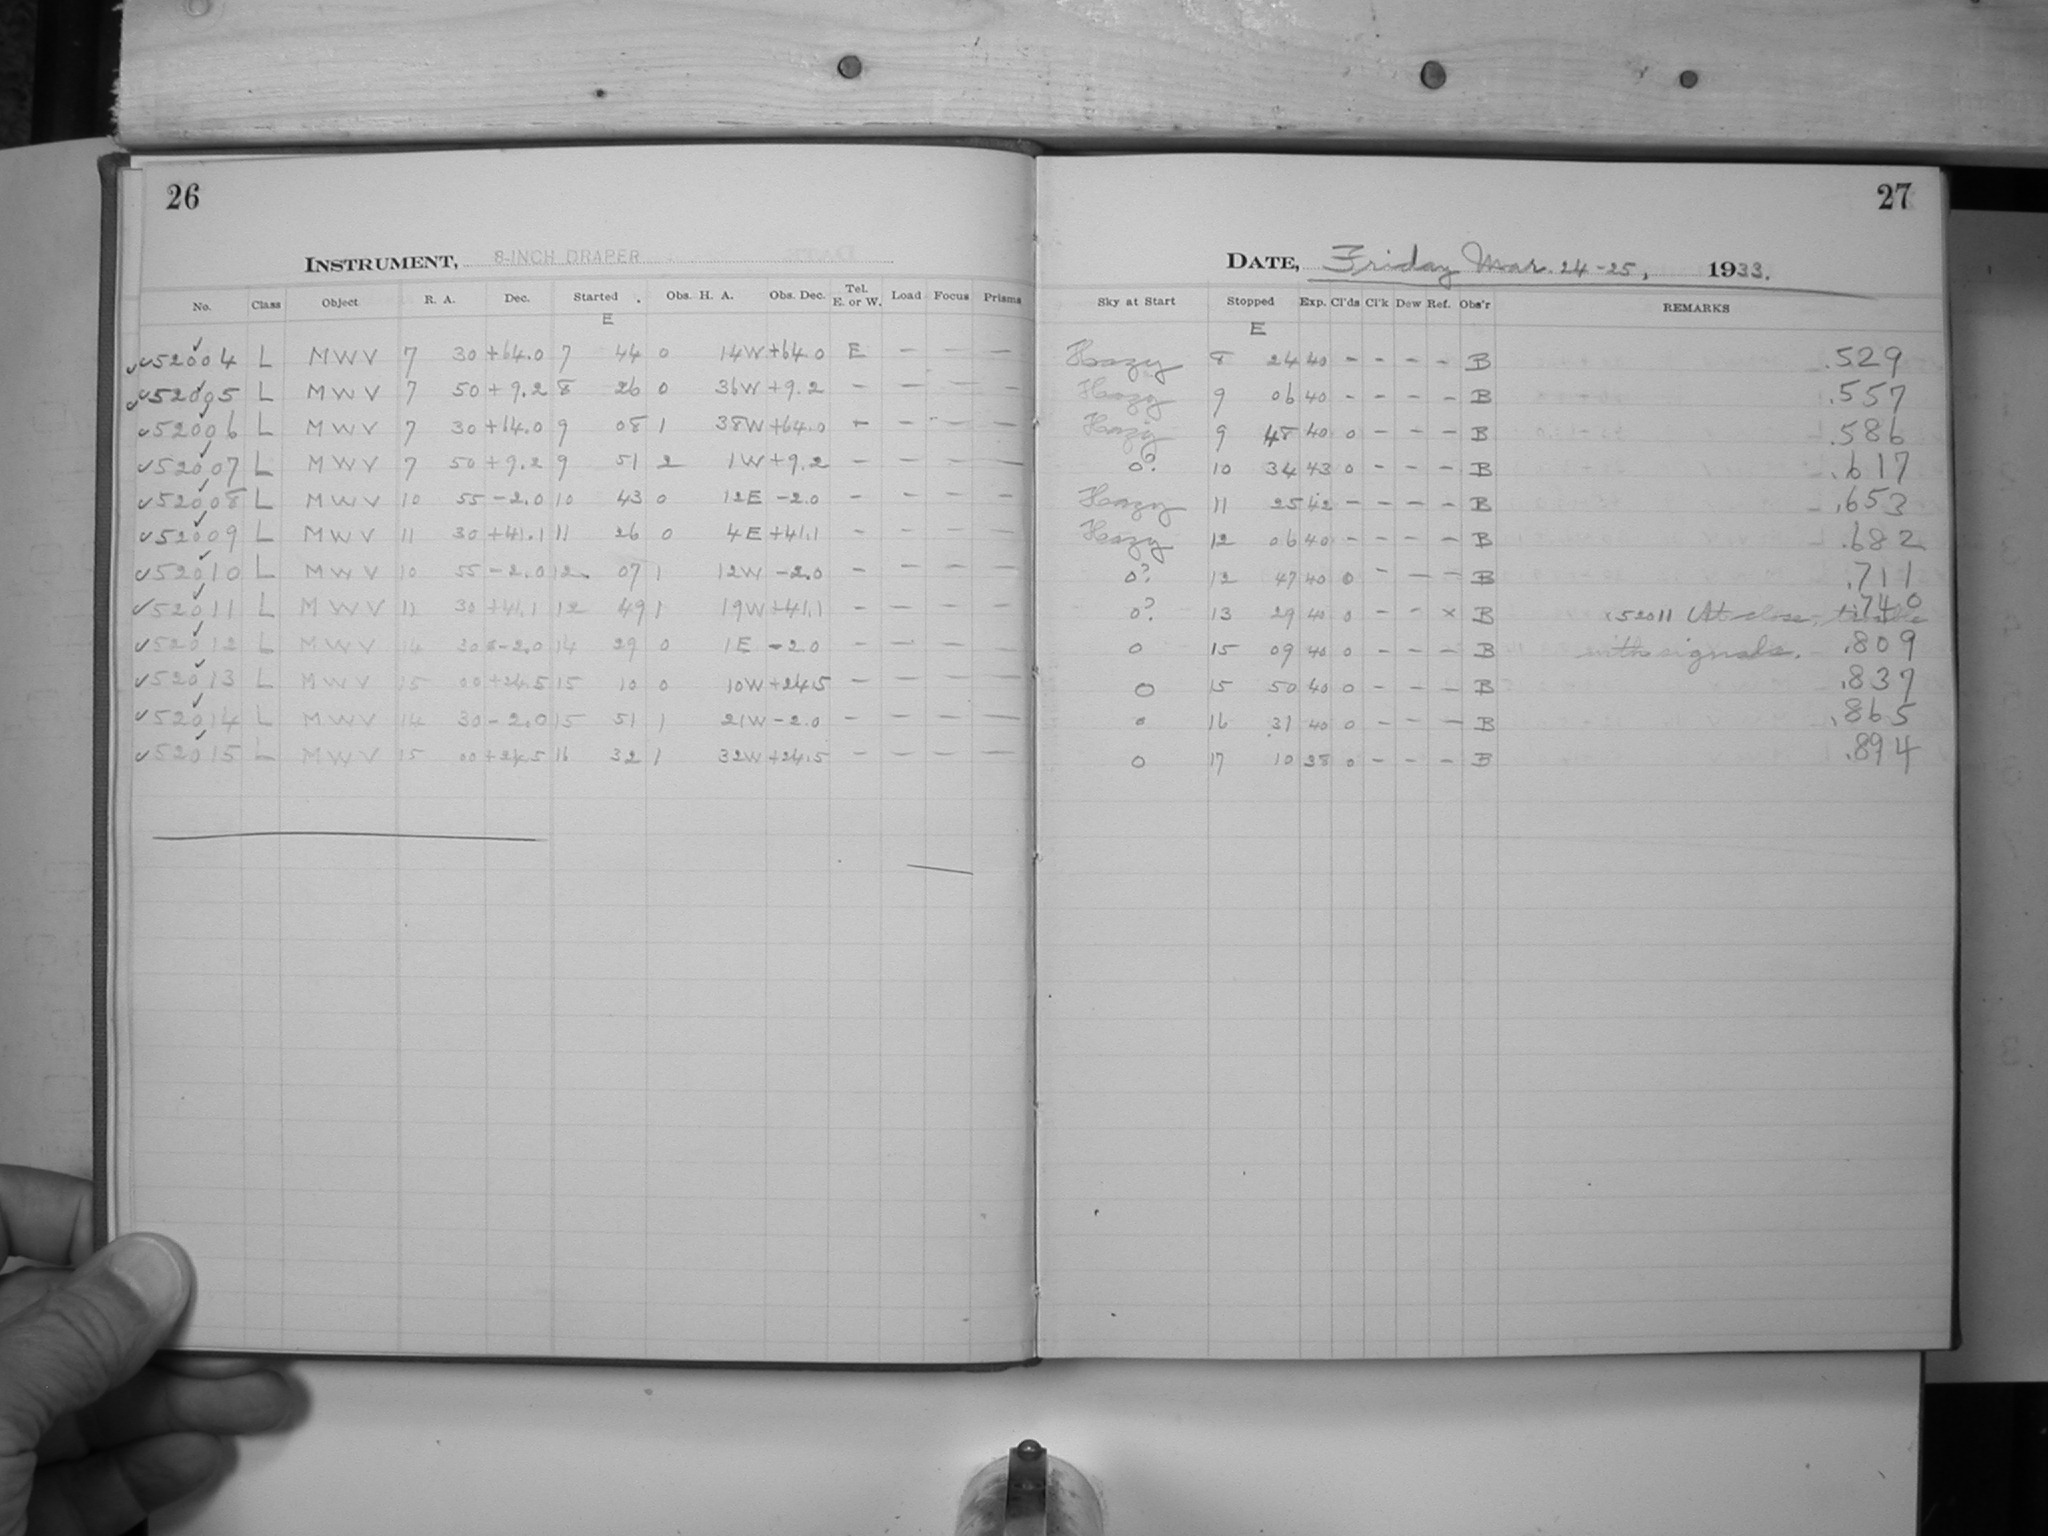 26
INSTRUMENT, 8-INCH DRAPER
No. Class Object R. A. Dec. Started Obs. H. A. Obs. Dec. Tel. E. or W. Load Focus Prisms
E
✓52004 L MWV 7 30 +64.0 7 44 0 14W +64.0 E – – –
✓52005 L MWV 7 50 +9.2 8 26 0 36W +9.2 – – – –
✓52006 L MWV 7 30 +64.0 9 08 1 38W +64.0 – – – –
✓52007 L MWV 7 50 +9.2 9 51 2 1W +9.2 – – – –
✓52008 L MWV 10 55 -2.0 10 43 0 12E -2.0 – – – –
✓52009 L MWV 11 30 +41.1 11 26 0 4E +41.1 – – – –
✓52010 L MWV 10 55 -2.0 12 07 1 12W -2.0 – – – –
✓52011 L MWV 11 30 +41.1 12 49 1 19W +41.1 – – – –
✓52012 L MWV 14 30 -2.0 14 29 0 1E -2.0 – – – –
✓52013 L MWV 15 00 +24.5 15 10 0 10W +24.5 – – – –
✓52014 L MWV 14 30 -2.0 15 51 1 21W -2.0 – – – –
✓52015 L MWV 15 00 +24.5 16 32 1 32W +24.5 – – – –
27
DATE, Friday Mar. 24-25, 1933.
Sky at Start Stopped Exp. Cl'ds Cl'k Dew Ref. Obs'r REMARKS
E
Hazy 8 24 40 – – – – B .529
Hazy 9 06 40 – – – – B .557
Hazy 9 48 40 0 – – – B .586
0? 10 34 43 0 – – – B .617
Hazy 11 25 42 – – – – B .653
Hazy 12 06 40 – – – – B .682
0? 12 47 40 0 – – – B .711
0? 13 29 40 0 – – × B ×52011 At close, trouble .740
0 15 09 40 0 – – – B with signals. .809
0 15 50 40 0 – – – B .837
0 16 31 40 0 – – – B .865
0 17 10 38 0 – – – B .894